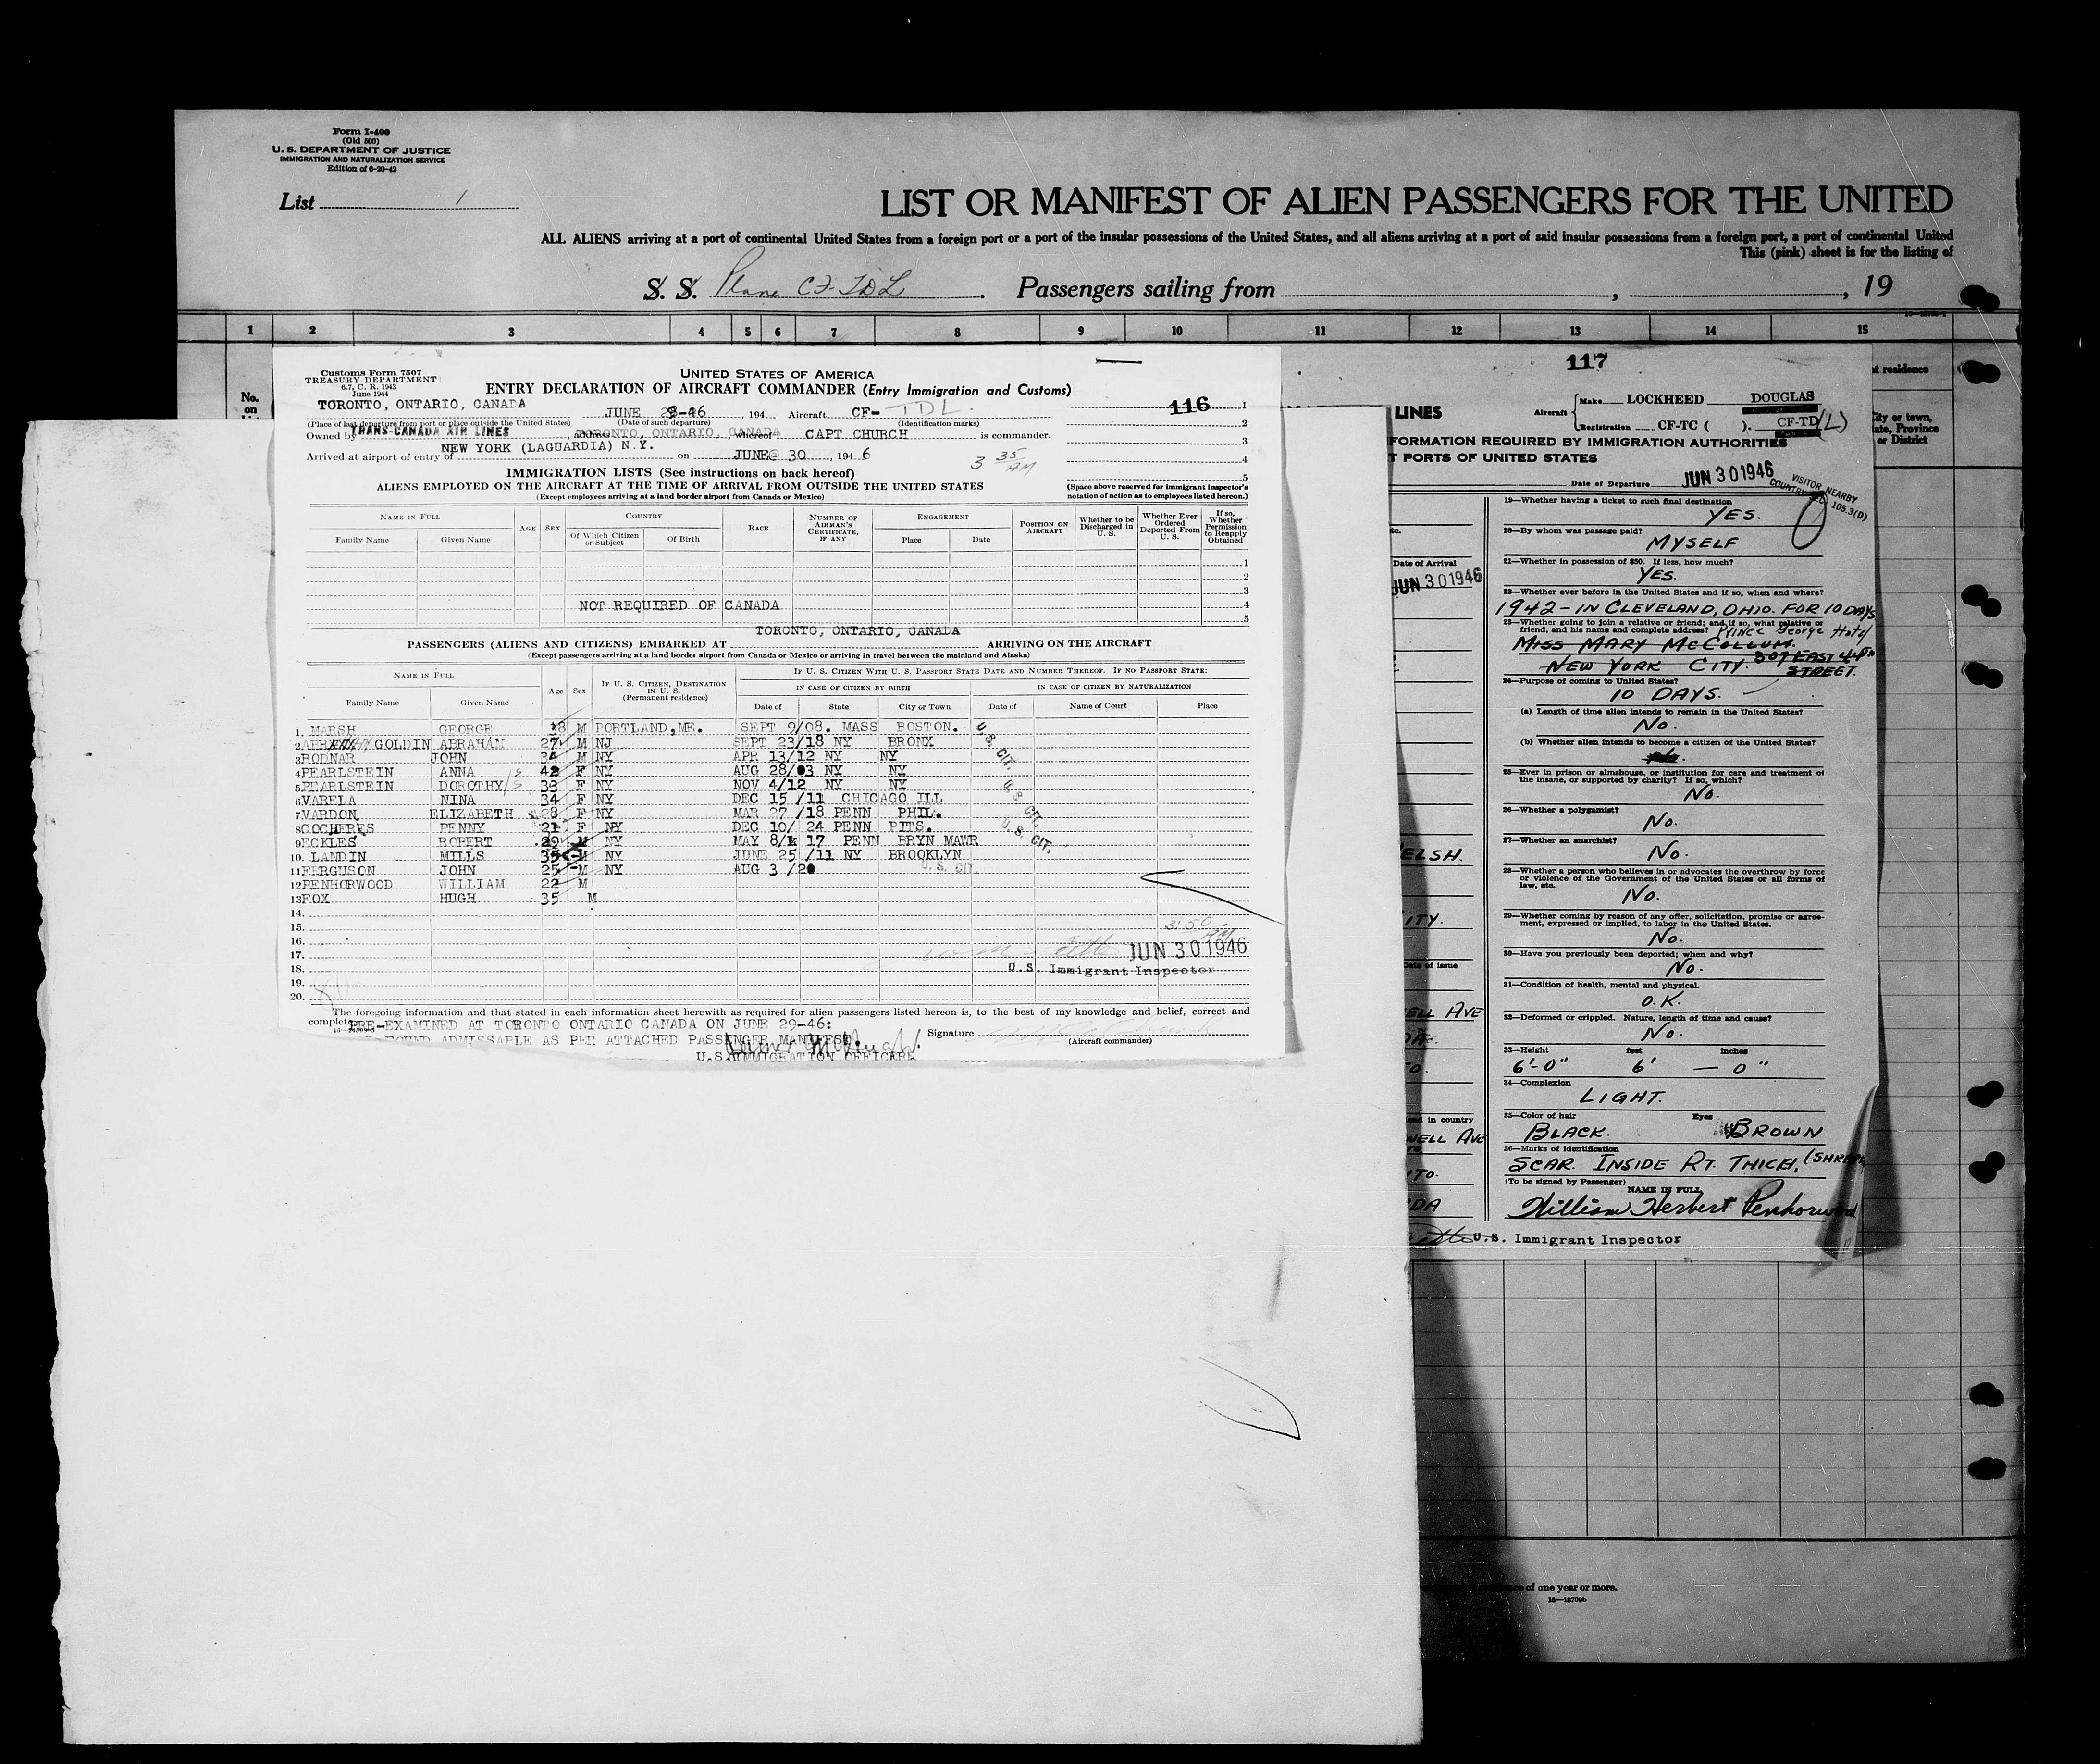 Form I-400
(Old 500)
U. S. DEPARTMENT OF JUSTICE
IMMIGRATION AND NATURALIZATION SERVICE
Edition of 6-20-42
List 1
LIST OR MANIFEST OF ALIEN PASSENGERS FOR THE UNITED
ALL ALIENS arriving at a port of continental United States from a foreign port or a port of the insular possessions of the United States, and all aliens arriving at a port of said insular possessions from a foreign port, a port of continental United
This (pink) sheet is for the listing of
S. S. Plane CF-TDL . Passengers sailing from , , 19
1 2 3 4 5 6 7 8 9 10 11 12 13 14 15
No.
on
t residence
City or town,
ate, Province
or District
Customs Form 7507
TREASURY DEPARTMENT
6.7, C. R. 1943
June 1944
UNITED STATES OF AMERICA
ENTRY DECLARATION OF AIRCRAFT COMMANDER (Entry Immigration and Customs)
116
TORONTO, ONTARIO, CANADA JUNE 29-46 , 194 Aircraft CF- TDL.
(Place of last departure from port or place outside the United States) (Date of such departure) (Identification marks)
Owned by TRANS-CANADA AIR LINES , address TORONTO, ONTARIO, CANADA whereof CAPT CHURCH is commander.
Arrived at airport of entry of NEW YORK (LAGUARDIA) N.Y. on JUNE 30 , 194 6
3 35 AM
1
2
3
4
5
IMMIGRATION LISTS (See instructions on back hereof)
ALIENS EMPLOYED ON THE AIRCRAFT AT THE TIME OF ARRIVAL FROM OUTSIDE THE UNITED STATES
(Except employees arriving at a land border airport from Canada or Mexico)
(Space above reserved for immigrant inspector's
notation of action as to employees listed hereon.)
NAME IN FULL
Family Name Given Name
AGE SEX
COUNTRY
Of Which Citizen or Subject Of Birth
RACE
NUMBER OF AIRMAN'S CERTIFICATE, IF ANY
ENGAGEMENT
Place Date
POSITION ON AIRCRAFT
Whether to be Discharged in U. S.
Whether Ever Ordered Deported From U. S.
If so, Whether Permission to Reapply Obtained
1
2
3
NOT REQUIRED OF CANADA 4
5
PASSENGERS (ALIENS AND CITIZENS) EMBARKED AT TORONTO, ONTARIO, CANADA ARRIVING ON THE AIRCRAFT
(Except passengers arriving at a land border airport from Canada or Mexico or arriving in travel between the mainland and Alaska)
NAME IN FULL
Family Name Given Name
Age Sex
IF U. S. CITIZEN, DESTINATION IN U. S.
(Permanent residence)
IF U. S. CITIZEN WITH U. S. PASSPORT STATE DATE AND NUMBER THEREOF. IF NO PASSPORT STATE:
IN CASE OF CITIZEN BY BIRTH IN CASE OF CITIZEN BY NATURALIZATION
Date of State City or Town Date of Name of Court Place
1. MARSH GEORGE 38 M PORTLAND,ME. SEPT 9/08. MASS BOSTON. U.S. CIT.
2. GOLDIN ABRAHAM 27 M NJ SEPT 23/18 NY BRONX
3 BODNAR JOHN 34 M NY APR 13/12 NY NY
4 PEARLSTEIN ANNA S 42 F NY AUG 28/03 NY NY
5. PEARLSTEIN DOROTHY/S 33 F NY NOV 4/12 NY NY
6. VARELA NINA 34 F NY DEC 15 /11 CHICAGO ILL U.S. CIT.
7. VARDON ELIZABETH 28 F NY MAR 27 /18 PENN PHIL.
8 COCHERES PENNY 21 F NY DEC 10/ 24 PENN PITS. U.S. CIT.
9 ECKLES ROBERT 29 M NY MAY 8/ 17 PENN BRYN MAWR
10. LANDIN MILLS 35 M NY JUNE 25 /11 NY BROOKLYN
11 FERGUSON JOHN 25 M NY AUG 3 /20 U.S. CIT.
12 PENHORWOOD WILLIAM 22 M
13 FOX HUGH 35 M
14.
15.
3:50 AM
16.
JUN 30 1946
17.
18. U.S. Immigrant Inspector
19.
20.
The foregoing information and that stated in each information sheet herewith as required for alien passengers listed hereon is, to the best of my knowledge and belief, correct and
complete.
PRE-EXAMINED AT TORONTO ONTARIO CANADA ON JUNE 29-46:
Signature
(Aircraft commander)
FOUND ADMISSABLE AS PER ATTACHED PASSENGER MANIFEST.
U.S. IMMIGRATION OFFICER
117
LINES
Aircraft Make LOCKHEED DOUGLAS
Registration CF-TC ( ). CF-TD (L)
FORMATION REQUIRED BY IMMIGRATION AUTHORITIES
T PORTS OF UNITED STATES
Date of Departure JUN 30 1946
VISITOR NEARBY
COUNTRY SEC. 105.3(D)
tc.
Date of Arrival
JUN 30 1946
ELSH.
ITY.
Date of issue
ELL AVE
DA.
TO.
end in country
WELL AVE
TO.
DA
19—Whether having a ticket to such final destination
YES.
20—By whom was passage paid?
MYSELF
21—Whether in possession of $50. If less, how much?
YES.
22—Whether ever before in the United States and if so, when and where?
1942 - IN CLEVELAND, OHIO. FOR 10 DAYS
23—Whether going to join a relative or friend; and if so, what relative or
friend, and his name and complete address? Prince George Hotel
MISS MARY McCOLLUM.
NEW YORK CITY. 307 EAST 44TH
STREET.
24—Purpose of coming to United States?
10 DAYS.
(a) Length of time alien intends to remain in the United States?
No.
(b) Whether alien intends to become a citizen of the United States?
25—Ever in prison or almshouse, or institution for care and treatment of
the insane, or supported by charity? If so, which?
No.
26—Whether a polygamist?
No.
27—Whether an anarchist?
No.
28—Whether a person who believes in or advocates the overthrow by force
or violence of the Government of the United States or all forms of
law, etc.
No.
29—Whether coming by reason of any offer, solicitation, promise or agree-
ment, expressed or implied, to labor in the United States.
No.
30—Have you previously been deported; when and why?
No.
31—Condition of health, mental and physical.
O.K.
32—Deformed or crippled. Nature, length of time and cause?
No.
33—Height feet inches
6'-0" 6' — 0"
34—Complexion
LIGHT.
35—Color of hair Eyes
BLACK. BROWN
36—Marks of identification
SCAR. INSIDE RT. THIGH,
(To be signed by Passenger)
NAME IN FULL
William Herbert Penhorwood
U.S. Immigrant Inspector
of one year or more.
16—18709b